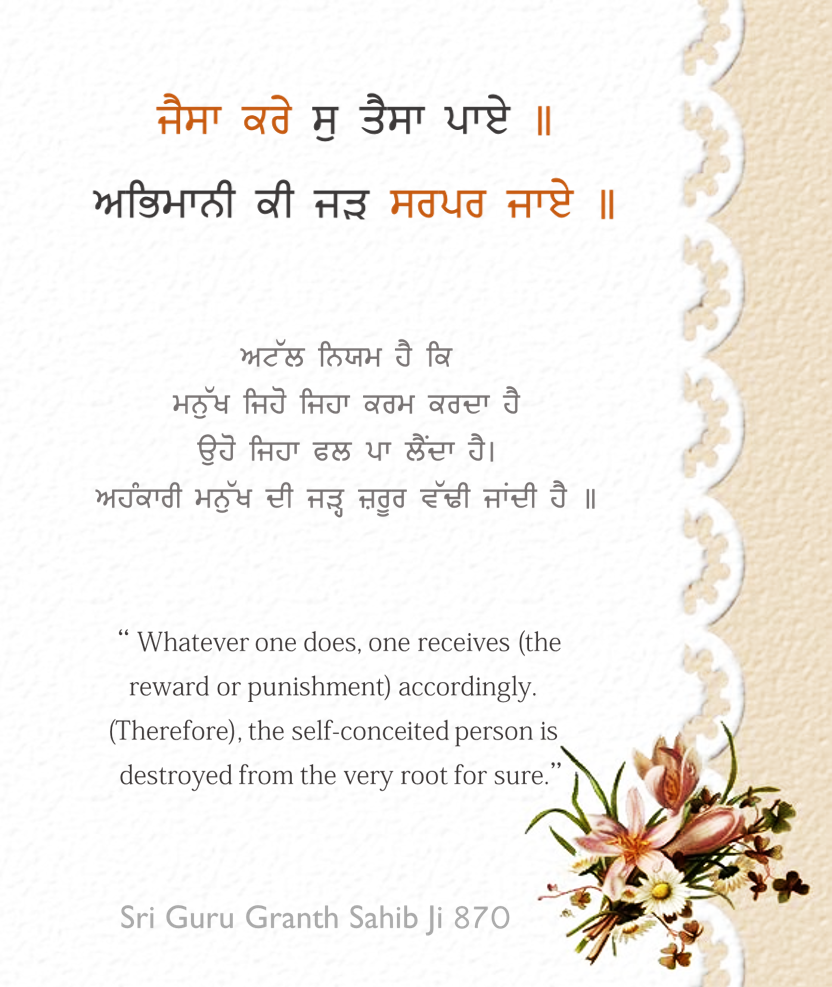 ਜੈਸਾ ਕਰੇ ਸੁ ਤੈਸਾ ਪਾਏ ॥
ਅਭਿਮਾਨੀ ਕੀ ਜੜ ਸਰਪਰ ਜਾਏ ॥
ਅਟੱਲ ਨਿਯਮ ਹੈ ਕਿ
ਮਨੁੱਖ ਜਿਹੋ ਜਿਹਾ ਕਰਮ ਕਰਦਾ ਹੈ
ਉਹੋ ਜਿਹਾ ਫਲ ਪਾ ਲੈਂਦਾ ਹੈ।
ਅਹੰਕਾਰੀ ਮਨੁੱਖ ਦੀ ਜੜ੍ਹ ਜ਼ਰੂਰ ਵੱਢੀ ਜਾਂਦੀ ਹੈ ॥
“ Whatever one does, one receives (the
reward or punishment) accordingly.
(Therefore), the self-conceited person is
destroyed from the very root for sure.”
Sri Guru Granth Sahib Ji 870